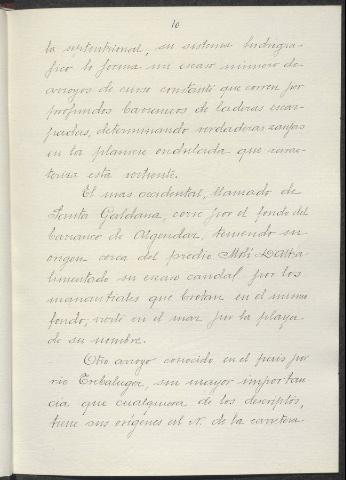 10
la septentrional, su sistema hidrográ-
fico lo forma un escaso número de
arroyos de curso constante que corren por
profundos barrancos de laderas escar-
padas, determinando verdaderas zanjas
en la planicie ondulada que carac-
teriza esta vertiente.
El más occidental, llamado de
Santa Galdana, corre por el fondo del
barranco de Algendar, teniendo su
origen cerca del predio Molí D'alt a-
limentado su escaso caudal por los
manantiales que brotan en el mismo
fondo; vierte en el mar por la playa
de su nombre.
Otro arroyo conocido en el país por
rio Trebaluger, sin mayor importan
cia que cualquiera de los descriptos,
tiene sus orígenes al N. de la carretera